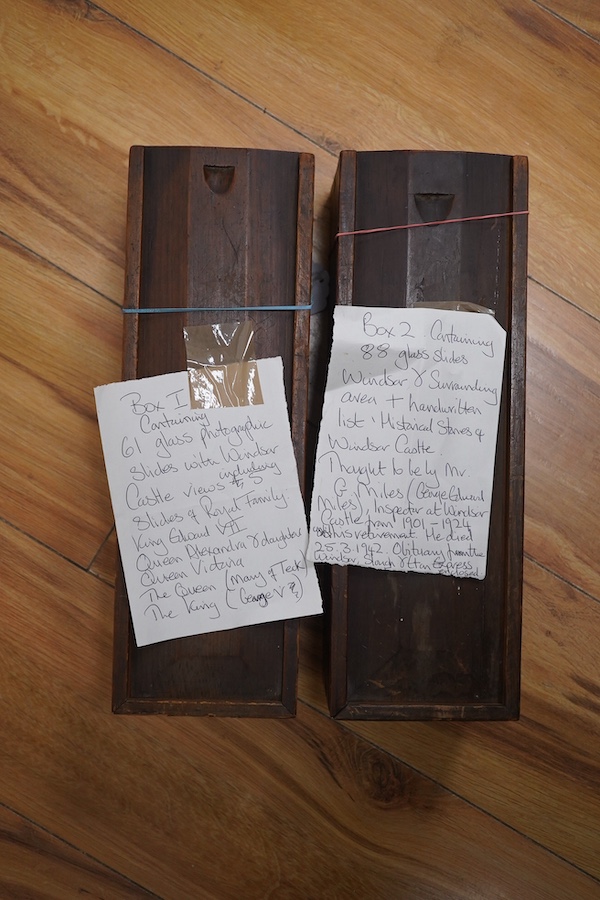 Box I
Containing
61 glass photographic
slides with Windsor
Castle views & 5 including
Slides of Royal Family.
King Edward VII
Queen Alexandra & daughter
Queen Victoria
The Queen (Mary of Teck
The King (George V ?)
Box 2 Containing
88 glass slides
Windsor & Surrounding
area + handwritten
list, Historical Stories of
Windsor Castle
Thought to be by Mr.
G. Miles (George Edward
Miles), Inspector at Windsor
Castle from 1901 - 1924
until his retirement. He died
25.3.1942. Obituary from the
Windsor, Slough & Eton Express
enclosed